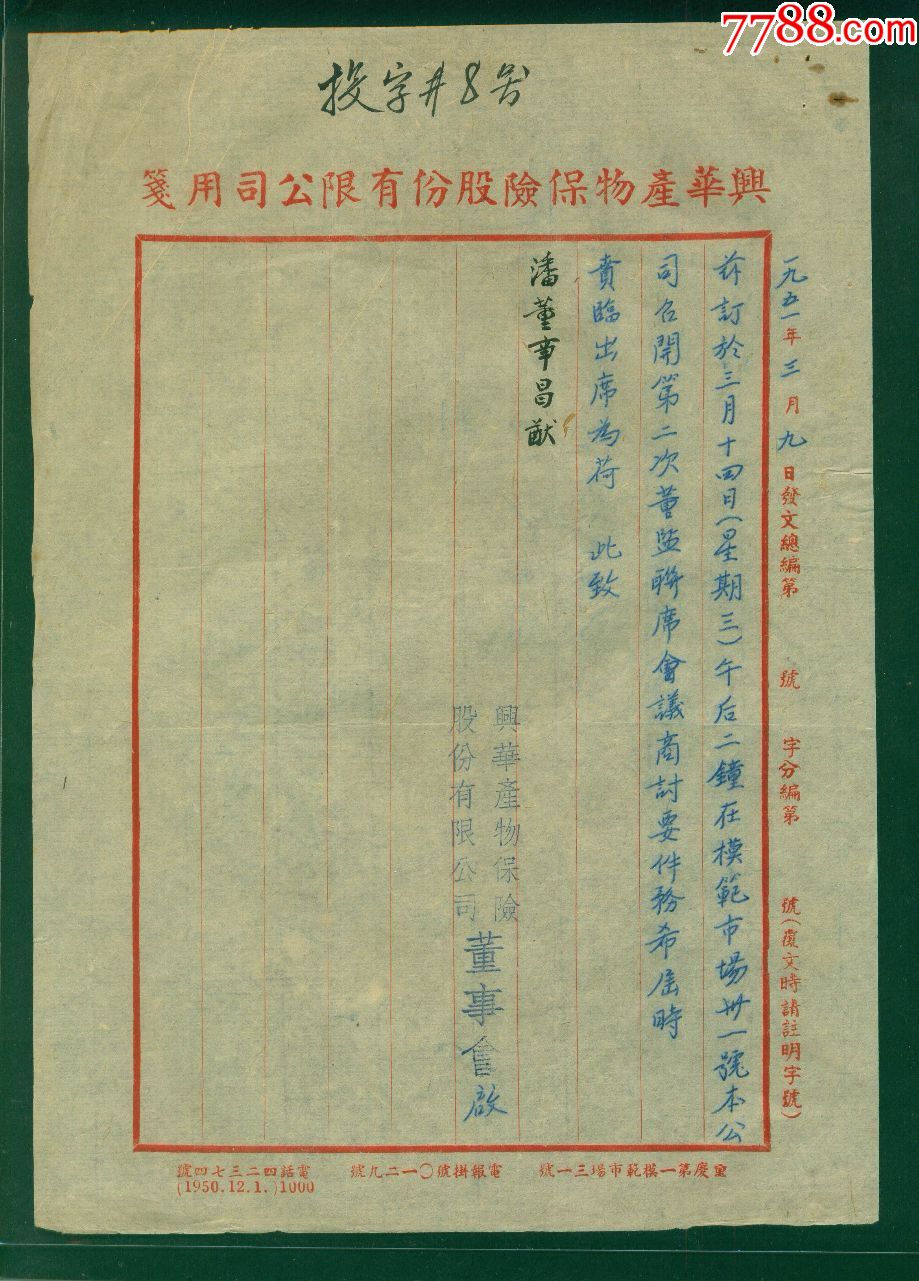 7788.com
投字#8号
興華產物保險股份有限公司用箋
一九五一年三月九日發文總編第 號 字分編第 號(覆文時請註明字號)
茲訂於三月十四日(星期三)午后二鐘在模範市場卅一號本公
司召開第二次董監聯席會議商討要件務希屆時
賁臨出席為荷 此致
潘董事昌猷
興華產物保險
股份有限公司
董事會啟
重慶第一模範市場三一號
電報掛號〇一二九號
電話四二三七四號
(1950.12.1.)1000